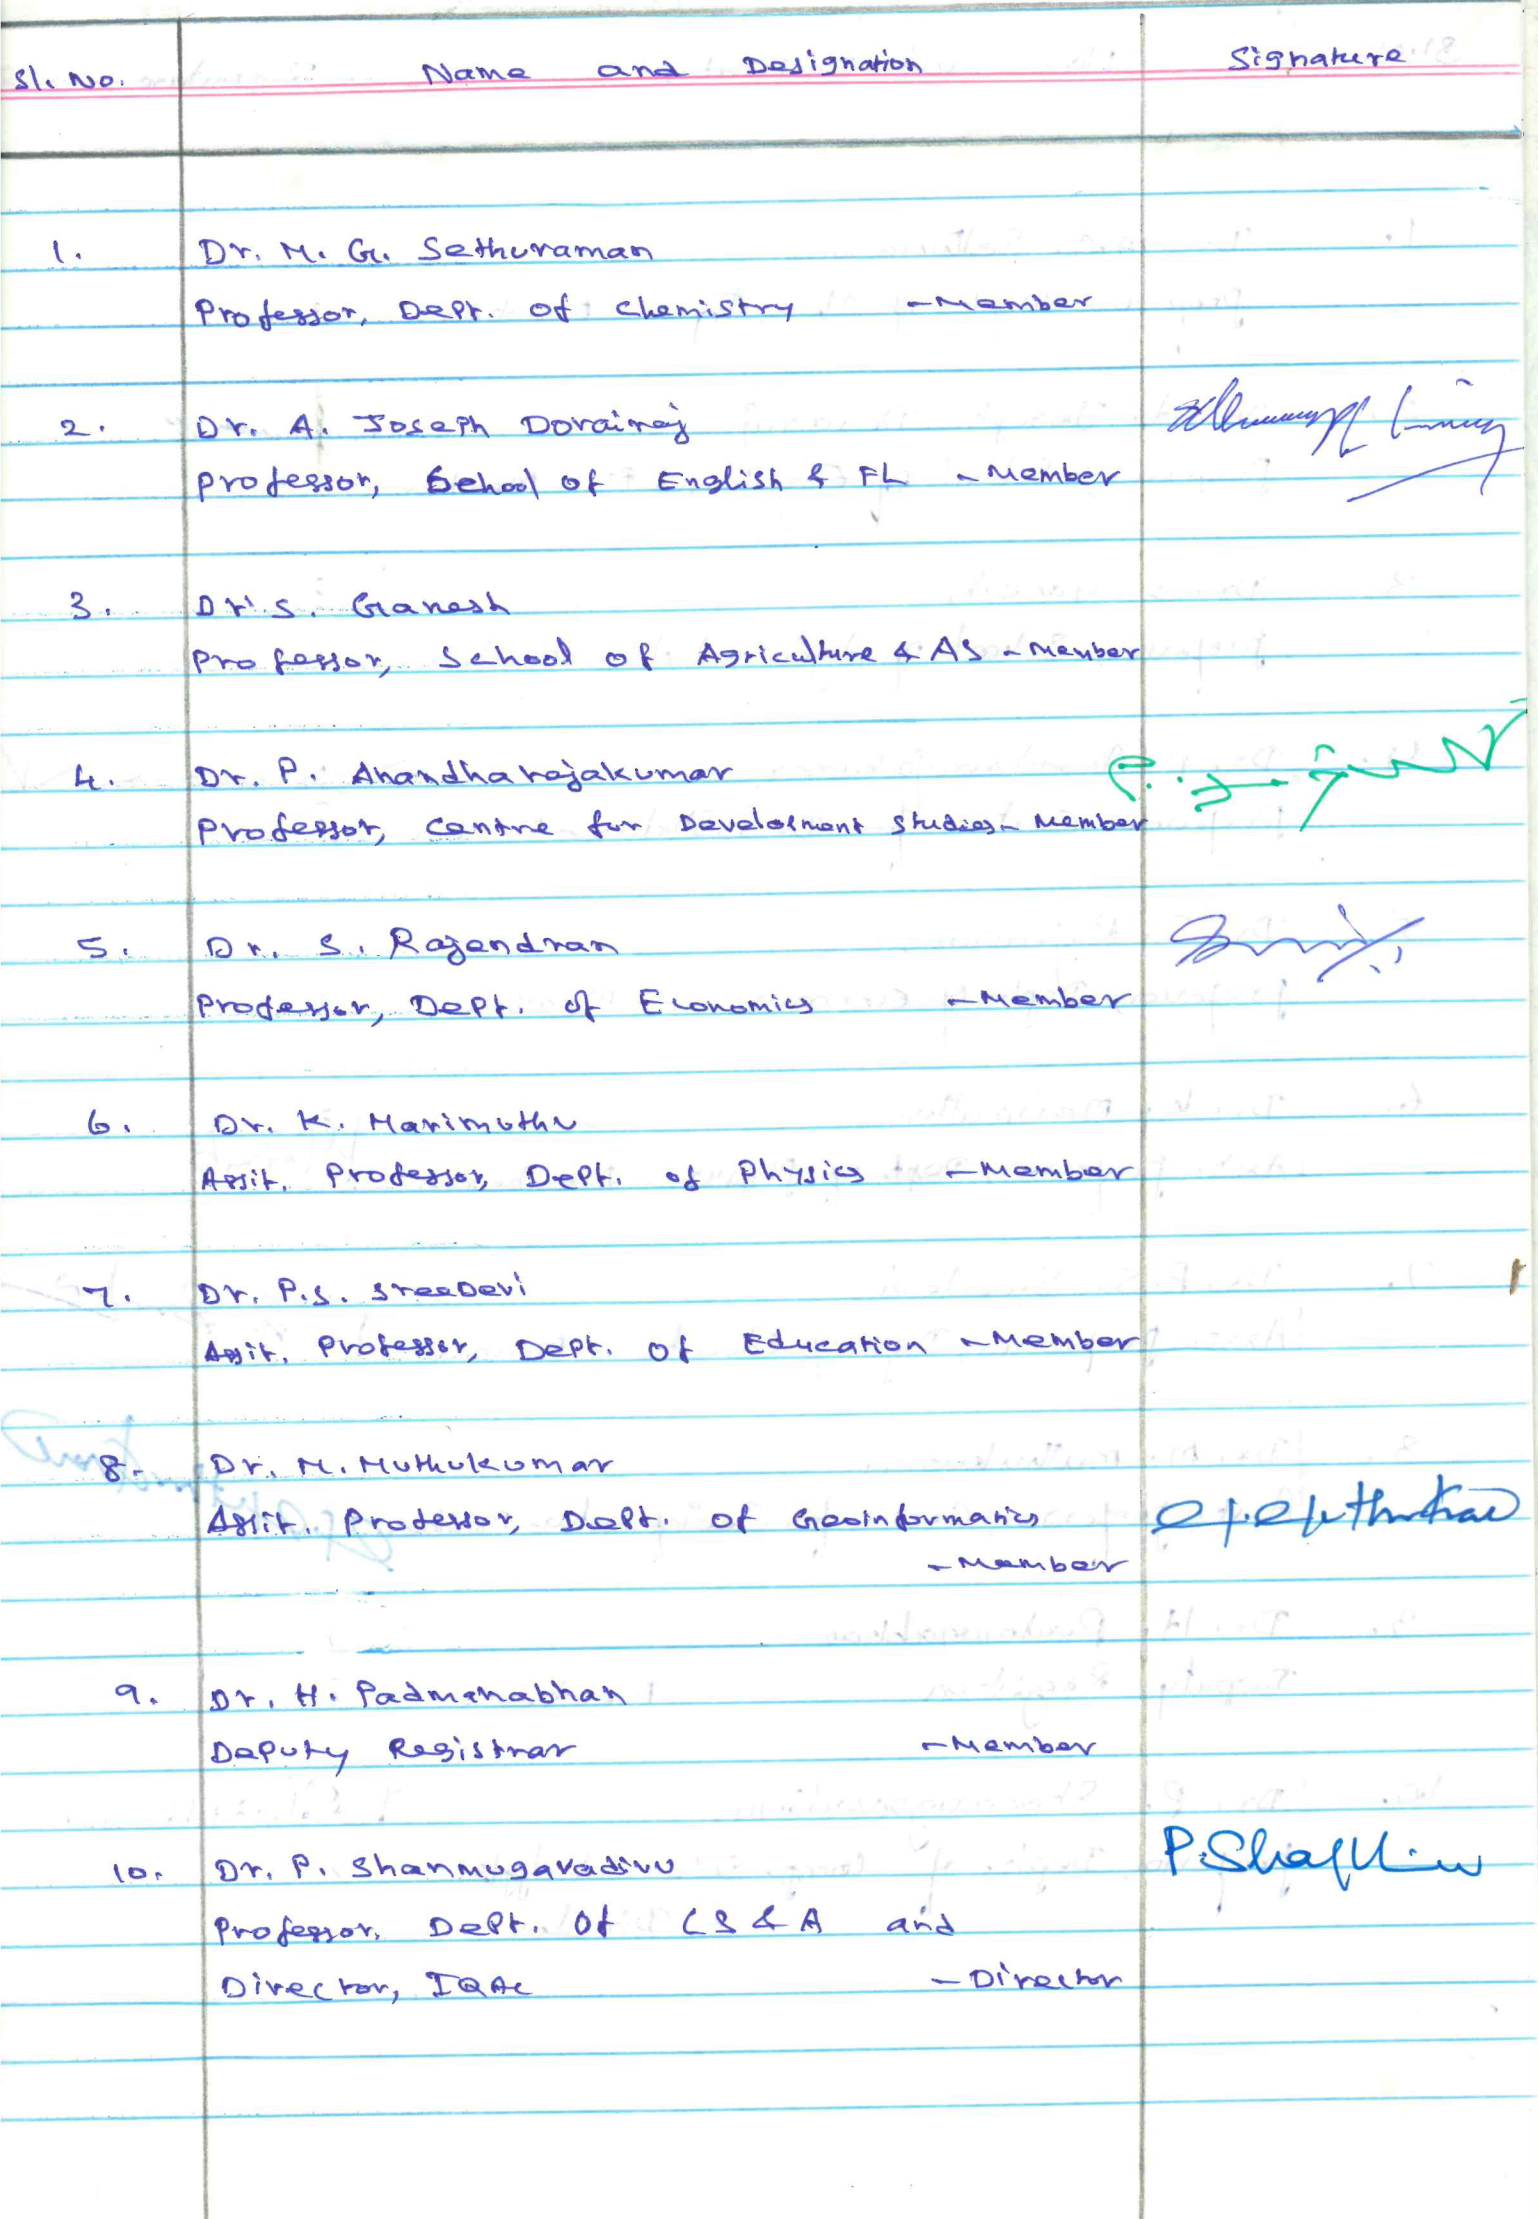 Sl. No. Name and Designation Signature
1. Dr. M. G. Sethuraman
Professor, Dept. of Chemistry - Member
2. Dr. A. Joseph Dorairaj
Professor, School of English & FL - Member
3. Dr. S. Ganesh
Professor, School of Agriculture & AS - Member
4. Dr. P. Anandharajakumar
Professor, Centre for Development Studies - Member
5. Dr. S. Rajendran
Professor, Dept. of Economics - Member
6. Dr. K. Marimuthu
Assit. Professor, Dept. of Physics - Member
7. Dr. P.S. SreeDevi
Assit. Professor, Dept. of Education - Member
8. Dr. M. Muthukumar
Assit. Professor, Dept. of Geoinformatics
- Member
9. Dr. H. Padmanabhan
Deputy Registrar - Member
10. Dr. P. Shanmugavadivu
Professor, Dept. of CS & A and
Director, IQAC - Director